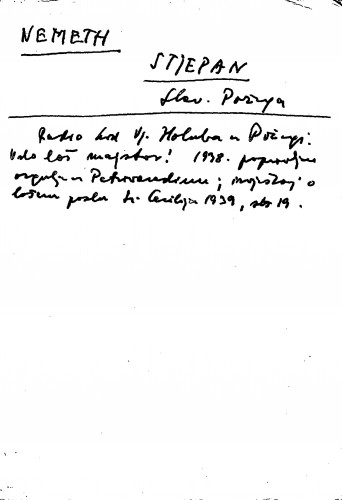 NEMETH
STJEPAN
Slav. Požega
Radio kod Vj. Holuba u Požegi.
Vrlo loš majstor! 1938. popravljao
orgulje u Petrovaradinu; izvještaj o
lošem poslu Sv. Cecilija 1939, str 19.